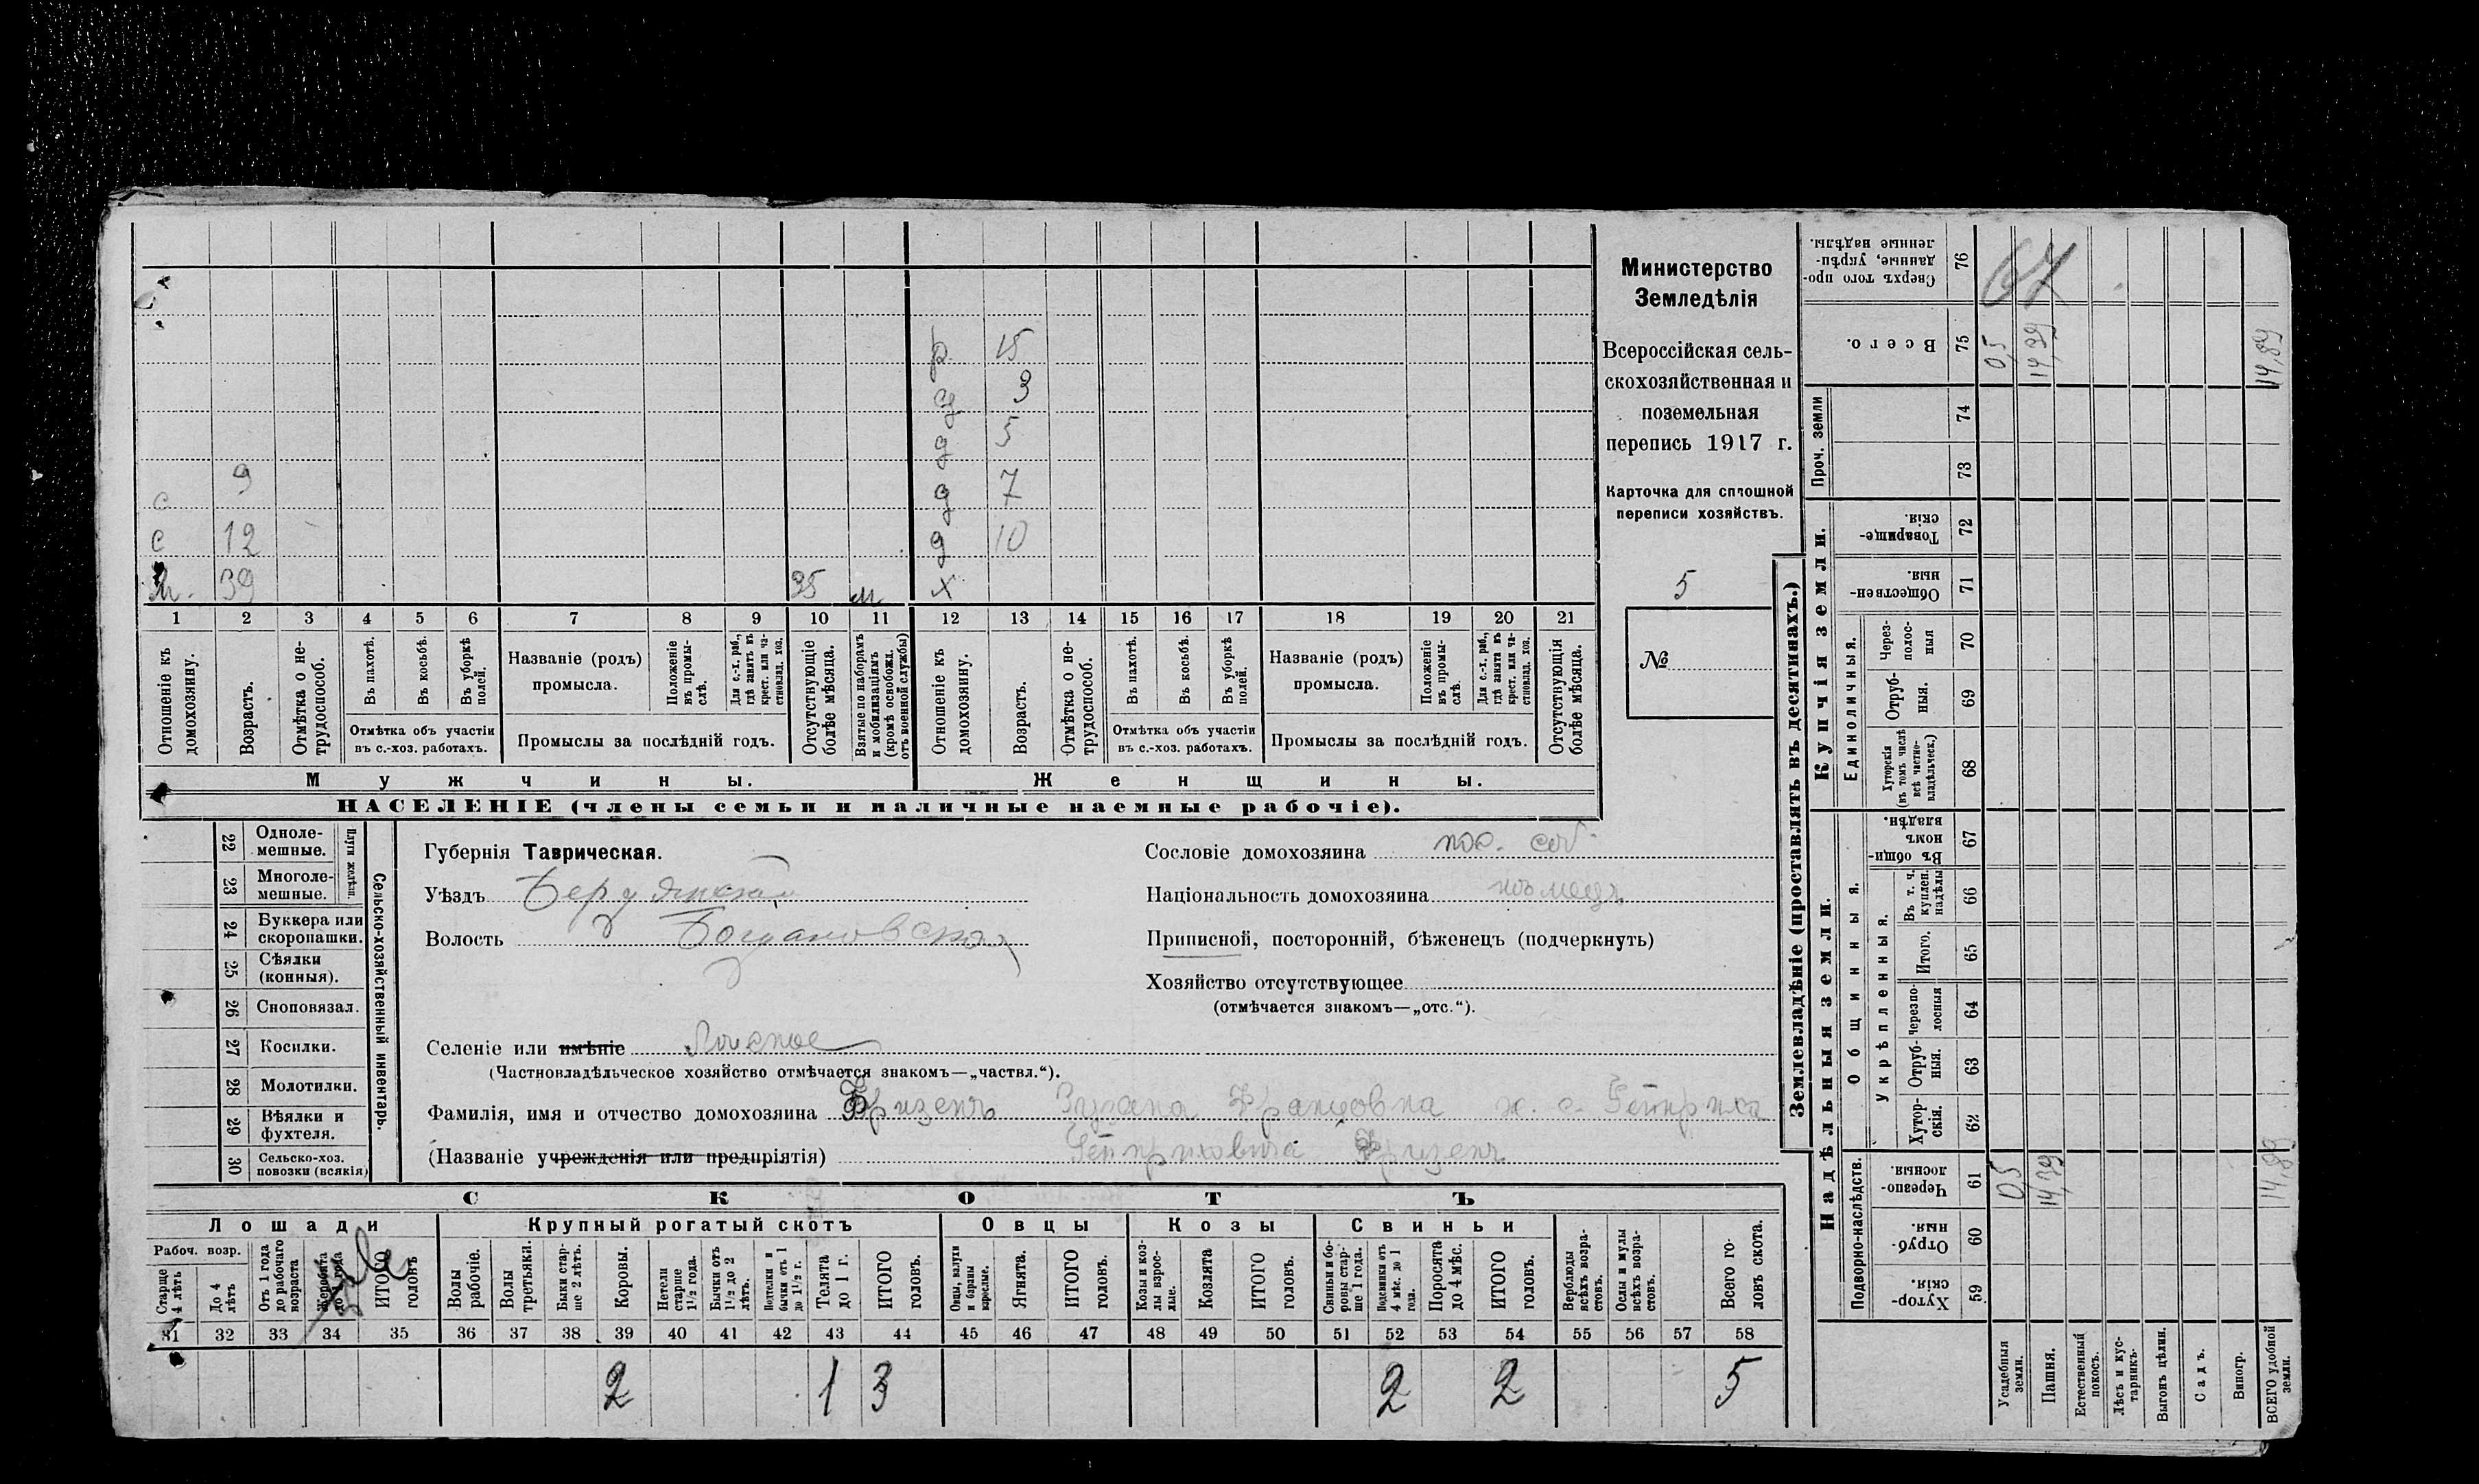 р. 15
д 3
д 5
с 9 д 7
с 12 д 10
м. 39 35 м х
1 2 3 4 5 6 7 8 9 10 11 12 13 14 15 16 17 18 19 20 21
Отношеніе къ домохозяину.
Возрастъ.
Отмѣтка о не-
трудоспособ.
Въ пахотѣ.
Въ косьбѣ.
Въ уборкѣ полей.
Отмѣтка объ участіи
въ с.-хоз. работахъ.
Названіе (родъ)
промысла.
Положеніе въ промы-
слѣ.
Для с.-х. раб.,
гдѣ занятъ въ
крест. или ча-
стновлад. хоз.
Промыслы за послѣдній годъ.
Отсутствующіе болѣе мѣсяца.
Взятые по наборамъ
и мобилизаціямъ
(кромѣ освобожд.
отъ военной службы)
Отношеніе къ домохозяину.
Возрастъ.
Отмѣтка о не-
трудоспособ.
Въ пахотѣ.
Въ косьбѣ.
Въ уборкѣ полей.
Отмѣтка объ участіи
въ с.-хоз. работахъ.
Названіе (родъ)
промысла.
Положеніе въ промы-
слѣ.
Для с.-х. раб.,
гдѣ занята въ
крест. или ча-
стновлад. хоз.
Промыслы за послѣдній годъ.
Отсутствующія болѣе мѣсяца.
Мужчины.
Женщины.
НАСЕЛЕНІЕ (члены семьи и наличные наемные рабочіе).
Министерство
Земледѣлія
Всероссійская сель-
скохозяйственная и
поземельная
перепись 1917 г.
Карточка для сплошной
переписи хозяйствъ.
5
№
22 Одноле-
мешные.
23 Многоле-
мешные.
Плуги желѣзн.
24 Буккера или
скоропашки.
25 Сѣялки
(конныя).
26 Сноповязал.
27 Косилки.
28 Молотилки.
29 Вѣялки и
фухтеля.
30 Сельско-хоз.
повозки (всякія)
Сельско-хозяйственный инвентарь.
Губернія Таврическая.
Уѣздъ Бердянскій
Волость Богдановская
Селеніе или имѣніе
(Частновладѣльческое хозяйство отмѣчается знакомъ—„частвл.“).
Фамилія, имя и отчество домохозяина Фризенъ Зузана Францовна ж. с. Гейнриха
(Названіе учрежденія или предпріятія) Гейнриховича Фризенъ
Сословіе домохозяина пос. соб.
Національность домохозяина нѣмецъ
Приписной, посторонній, бѣженецъ (подчеркнуть)
Хозяйство отсутствующее
(отмѣчается знакомъ—„отс.“).
СКОТЪ
Лошади
Крупный рогатый скотъ
Овцы
Козы
Свиньи
Рабоч. возр.
Старше 4 лѣтъ
До 4 лѣтъ
Отъ 1 года
до рабочаго
возраста
Жеребята до 1 года
ИТОГО головъ
Волы рабочіе.
Волы третьяки.
Быки стар-
ше 2 лѣтъ.
Коровы.
Нетели старше 1½ года.
Бычки отъ 1½ до 2 лѣтъ.
Телки и бычки отъ 1 до 1½ г.
Телята до 1 г.
ИТОГО головъ.
Овцы, валухи и бараны взрослые.
Ягнята.
ИТОГО головъ.
Козы и коз-
лы взрос-
лые.
Козлята
ИТОГО головъ.
Свиньи и бо-
ровы стар-
ше 1 года.
Подсвинки отъ 4 мѣс. до 1 года.
Поросята до 4 мѣс.
ИТОГО головъ.
Верблюды
всѣхъ возра-
стовъ.
Ослы и мулы
всѣхъ возра-
стовъ.
Всего го-
ловъ скота.
31 32 33 34 35 36 37 38 39 40 41 42 43 44 45 46 47 48 49 50 51 52 53 54 55 56 57 58
2 1 3 2 2 5
Землевладѣніе (проставлять въ десятинахъ.)
Надѣльныя земли.
Купчія земли.
Проч. земли
Сверхъ того про-
данные, укрѣп-
ленные надѣлы. 76 67
Всего. 75 0,5 14,39 14,89
74
73
Товарище-
скія. 72
Обществен-
ныя. 71
Единоличныя.
Через-
полос-
ныя 70
Отруб-
ныя. 69
Хуторскія
(въ томъ числѣ
всѣ частно-
владѣльческ.) 68
Общинныя.
Въ общи-
номъ
владѣн. 67
Укрѣпленныя.
Въ т. ч.
куплен.
надѣлы 66
Итого. 65
Черезпо-
лосныя 64
Отруб-
ныя. 63
Хутор-
скія. 62
Подворно-наслѣдств.
Черезпо-
лосныя. 61 0,5 14,39 14,89
Отруб-
ныя. 60
Хутор-
скія. 59
Усадебныя земли.
Пашня.
Естественный покосъ.
Лѣсъ и кус-
тарникъ.
Выгонъ цѣлин.
Садъ.
Виногр.
ВСЕГО удобной земли.